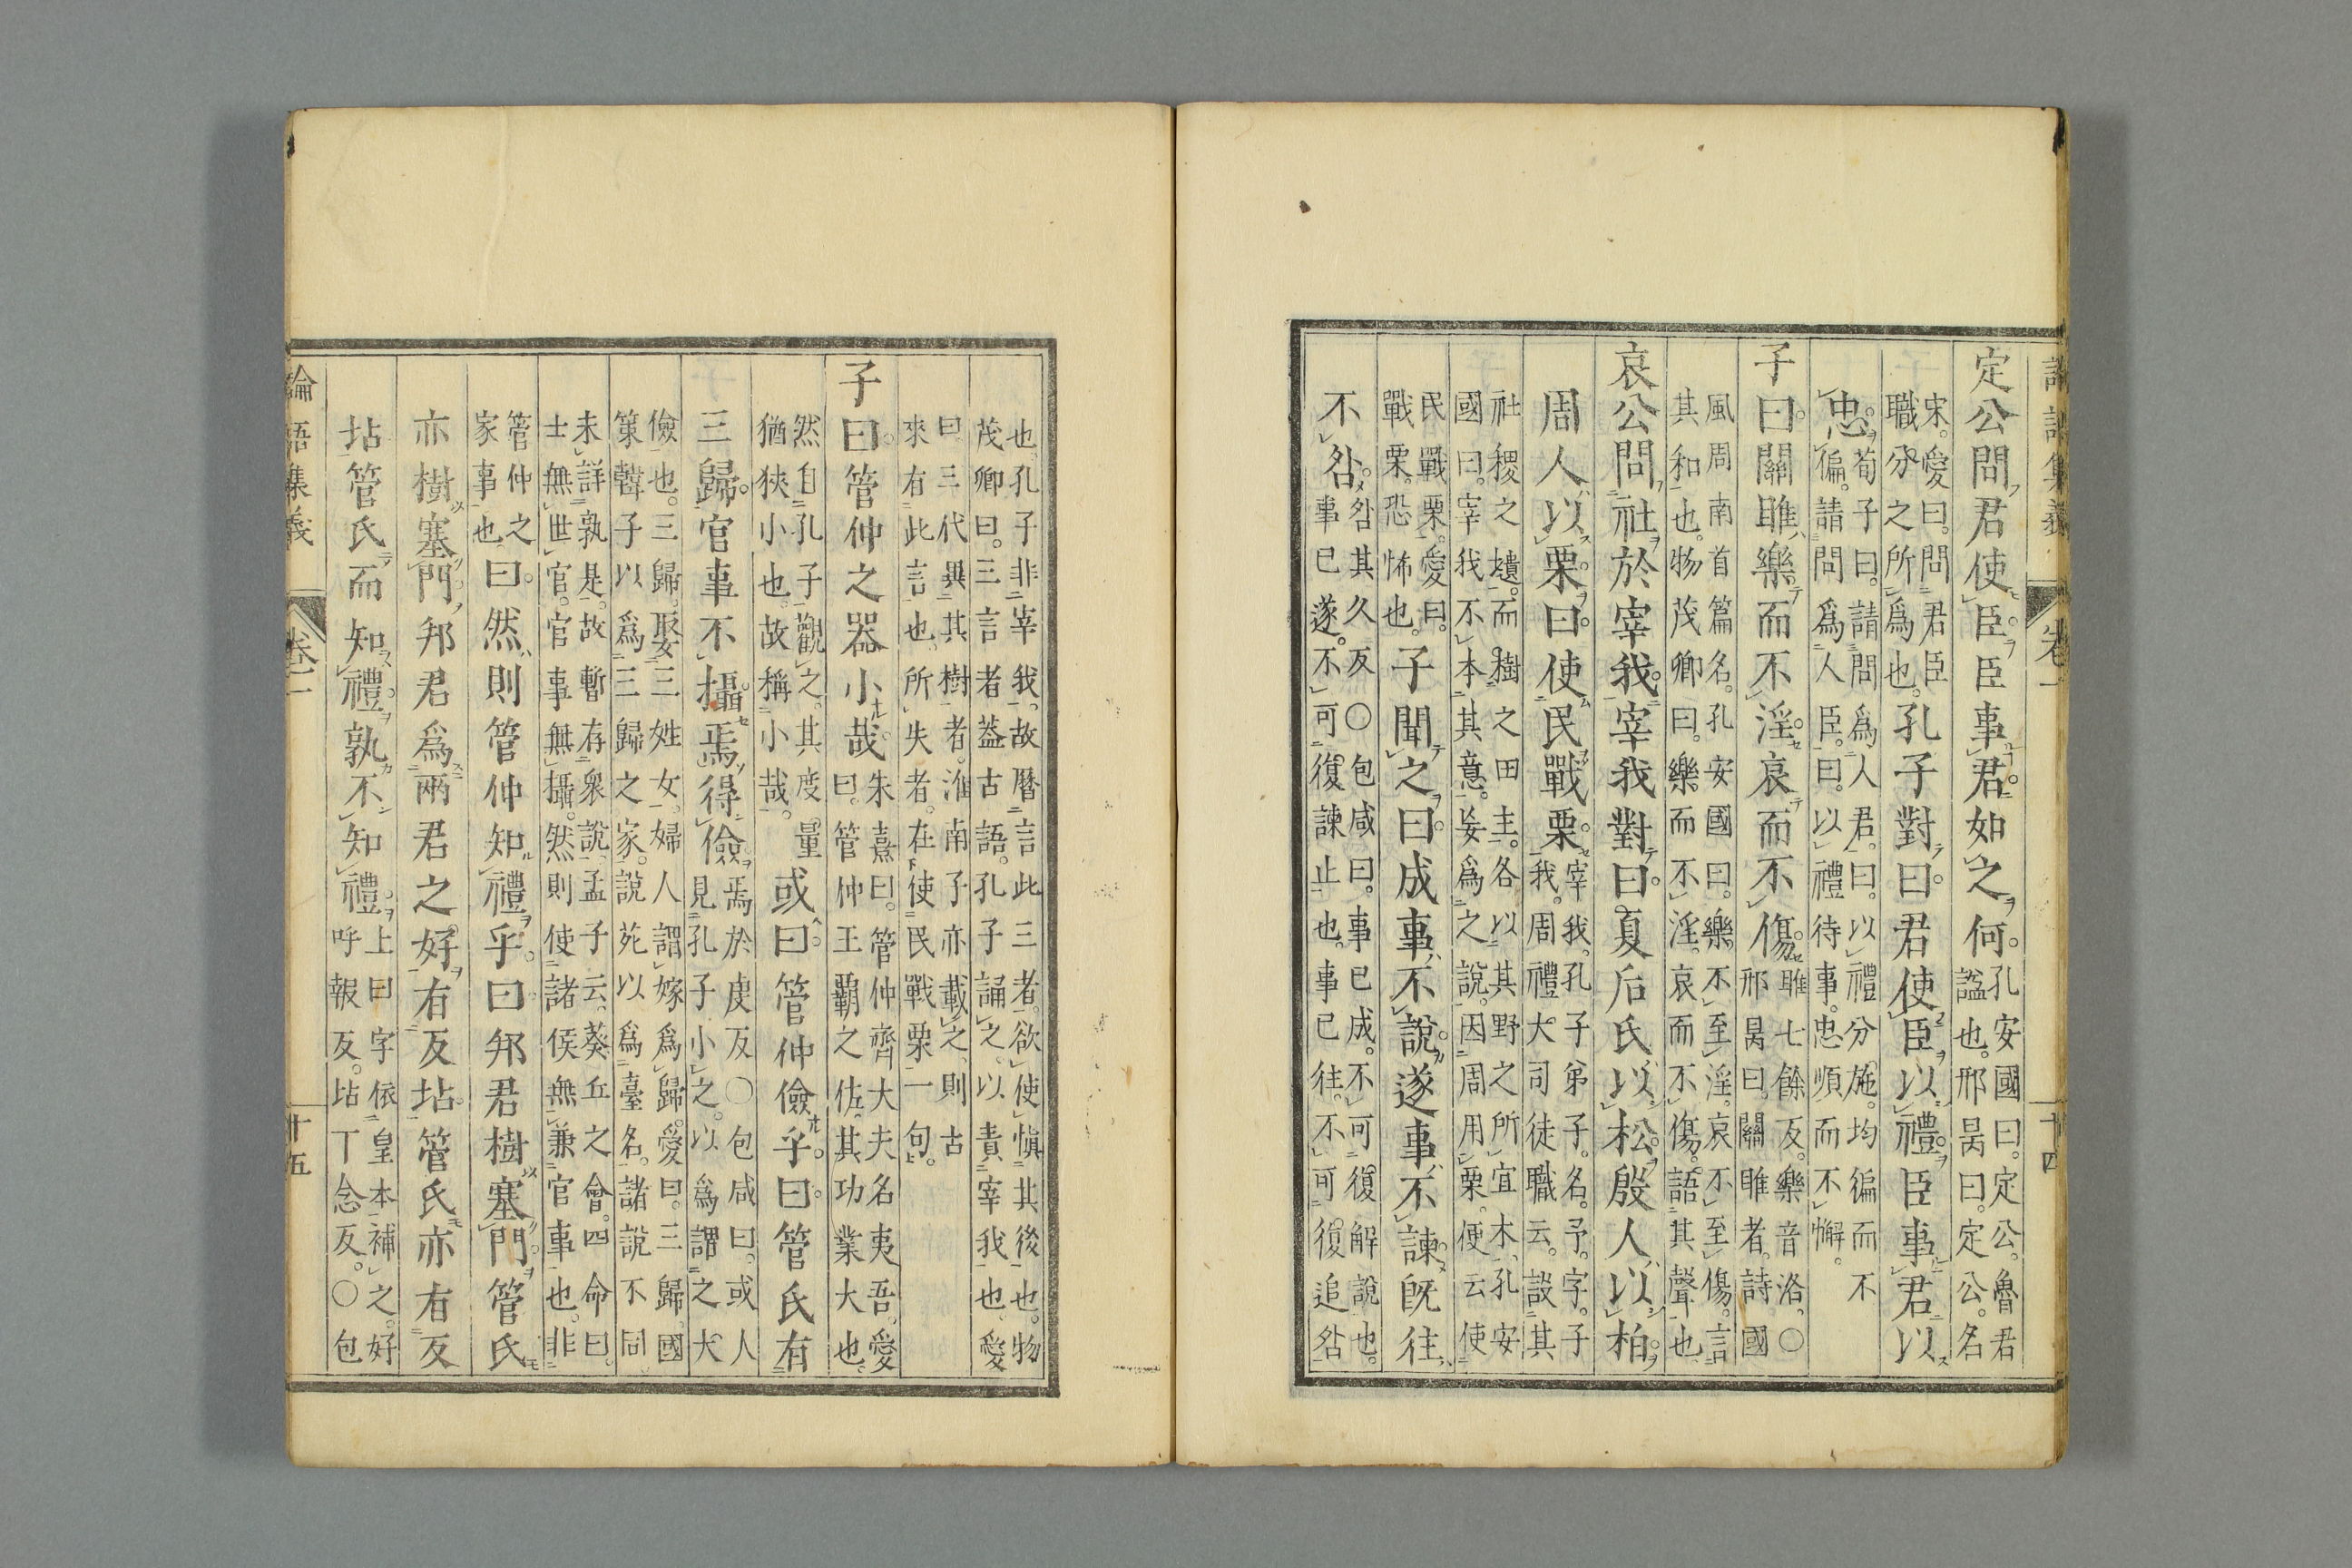 論語集義 卷二 十四
定公問君使臣臣事君如之何孔安國曰。定公。魯君
諡也。邢昺曰。定公。名
宋。愛曰。問君臣
職分之所爲也。孔子對曰君使臣以禮臣事君以
忠荀子曰。請問爲人君。曰。以禮分施。均徧而不
偏。請問爲人臣。曰。以禮待事。忠順而不懈。
子曰關雎樂而不淫哀而不傷雎七餘反。樂音洛。〇
邢昺曰。關雎者。詩國
風周南首篇名。孔安國曰。樂不至淫。哀不至傷。言
其和也。物茂卿曰。樂而不淫。哀而不傷。語其聲也
哀公問社於宰我宰我對曰夏后氏以松殷人以柏
周人以栗曰使民戰栗宰我。孔子弟子。名予。字子
我。周禮大司徒職云。設其
社稷之壝。而樹之田主。各以其野之所宜木。孔安
國曰。宰我不本其意。妄爲之說。因周用栗。便云使
民戰栗。愛曰。
戰栗。恐怖也。子聞之曰成事不說遂事不諫旣往
不咎咎其久反〇包咸曰。事已成。不可復解說也。
事已遂。不可復諫止也。事已往。不可復追咎
也。孔子非宰我。故曆言此三者。欲使愼其後也。物
茂卿曰。三言者蓋古語。孔子誦之。以責宰我也。愛
曰。三代異其樹者。淮南子亦載之。則古
來有此言也。所失者。在使民戰栗一句。
子曰管仲之器小哉朱熹曰。管仲齊大夫名夷吾。愛
曰。管仲王霸之佐。其功業大也。
然自孔子觀之。其度量
猶狹小也。故稱小哉。或曰管仲儉乎曰管氏有
三歸官事不攝焉得儉焉於虔反〇包咸曰。或人
見孔子小之。以爲謂之大
儉也。三歸。娶三姓女。婦人謂嫁爲歸。愛曰。三歸。國
策韓子以爲三歸之家。說苑以爲臺名。諸說不同
未詳孰是。故暫存衆說。孟子云。葵丘之會。四命曰。
士無世官。官事無攝。然則使諸侯無兼官事也。非
管仲之
家事也曰然則管仲知禮乎曰邦君樹塞門管氏
亦樹塞門邦君爲兩君之好有反坫管氏亦有反
坫管氏而知禮孰不知禮上曰字依皇本補之。好
呼報反。坫丁念反。〇包
論語集義 卷二 十五